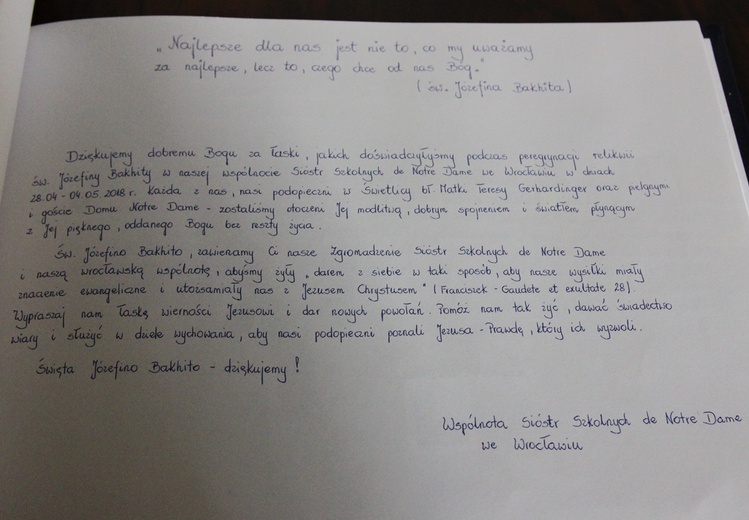 „Najlepsze dla nas jest nie to, co my uważamy
za najlepsze, lecz to, czego chce od nas Bóg."
(św. Józefina Bakhita)
Dziękujemy dobremu Bogu za łaski, jakich doświadczyłyśmy podczas peregrynacji relikwii
św. Józefiny Bakhity w naszej wspólnocie Sióstr Szkolnych de Notre Dame we Wrocławiu w dniach
28.04 - 04.05.2018 r. Każda z nas, nasi podopieczni w Świetlicy bł. Matki Teresy Gerhardinger oraz pielgrzymi
i goście Domu Notre Dame - zostaliśmy otoczeni Jej modlitwą, dobrym spojrzeniem i światłem płynącym
z Jej pięknego, oddanego Bogu bez reszty życia.
Św. Józefino Bakhito, zawierzamy Ci nasze Zgromadzenie Sióstr Szkolnych de Notre Dame
i naszą wrocławską wspólnotę, abyśmy żyły „darem z siebie w taki sposób, aby nasze wysiłki miały
znaczenie ewangeliczne i utożsamiały nas z Jezusem Chrystusem" (Franciszek - Gaudete et exultate 28)
Wypraszaj nam łaskę wierności Jezusowi i dar nowych powołań. Pomóż nam tak żyć, dawać świadectwo
wiary i służyć w dziele wychowania, aby nasi podopieczni poznali Jezusa - Prawdę, który ich wyzwoli.
Święta Józefino Bakhito - dziękujemy!
Wspólnota Sióstr Szkolnych de Notre Dame
we Wrocławiu